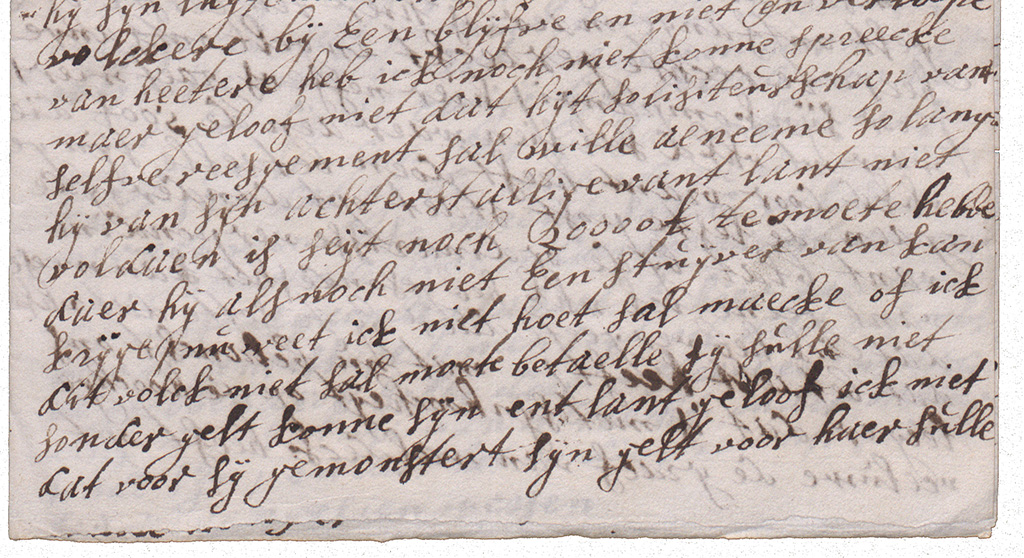 hy syn
volckere by Een blyfve en niet
van heetere heb ick noch niet konne spreecke
maer geloof niet dat hyt solisiteurschap vant
selfve reesgement sal wille aeneeme so lang
hy van syn achterstallige vant lant niet
voldaen is seyt noch 20000f te moete hebbe
daer hy als noch niet Een stuyver van kan
kryge nu weet ick niet hoet sal maecke of ick
dit volck niet sal moete betaelle sy sulle niet
sonder gelt konne syn ent lant geloof ick niet
dat voor sy gemonstert syn gelt voor haer sulle